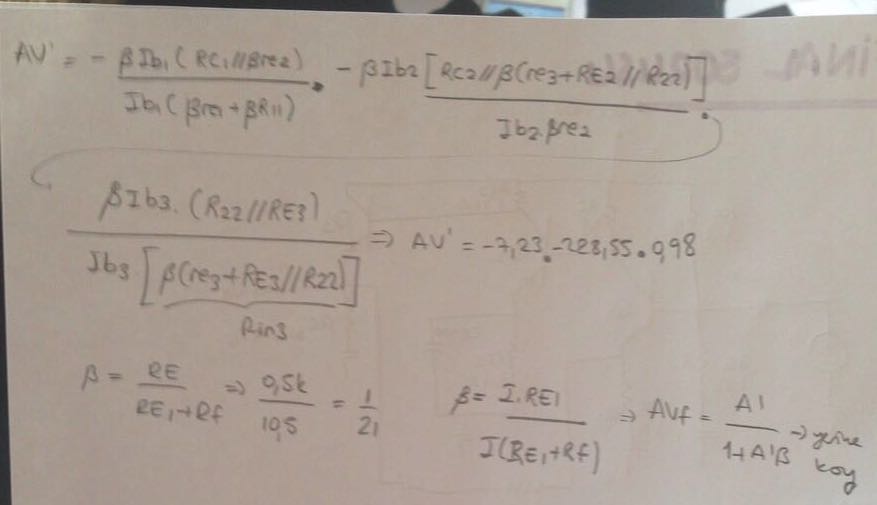 AV' = - βIb1 (RC1//βre2) / Ib1 (βre1 + βR11) . - βIb2 [RC2//β(re3+RE2//R22)] / Ib2.βre2 .
βIb3. (R22//RE3) / Ib3 [β(re3+RE3//R22)] ⇒ AV' = -7,23.-223,55.0,98
Rin3
β = RE / RE1+Rf ⇒ 0,5k / 10,5 = 1 / 21 β = I.RE1 / I(RE1+Rf) ⇒ AVf = A' / 1+A'β → yerine koy
İNAL